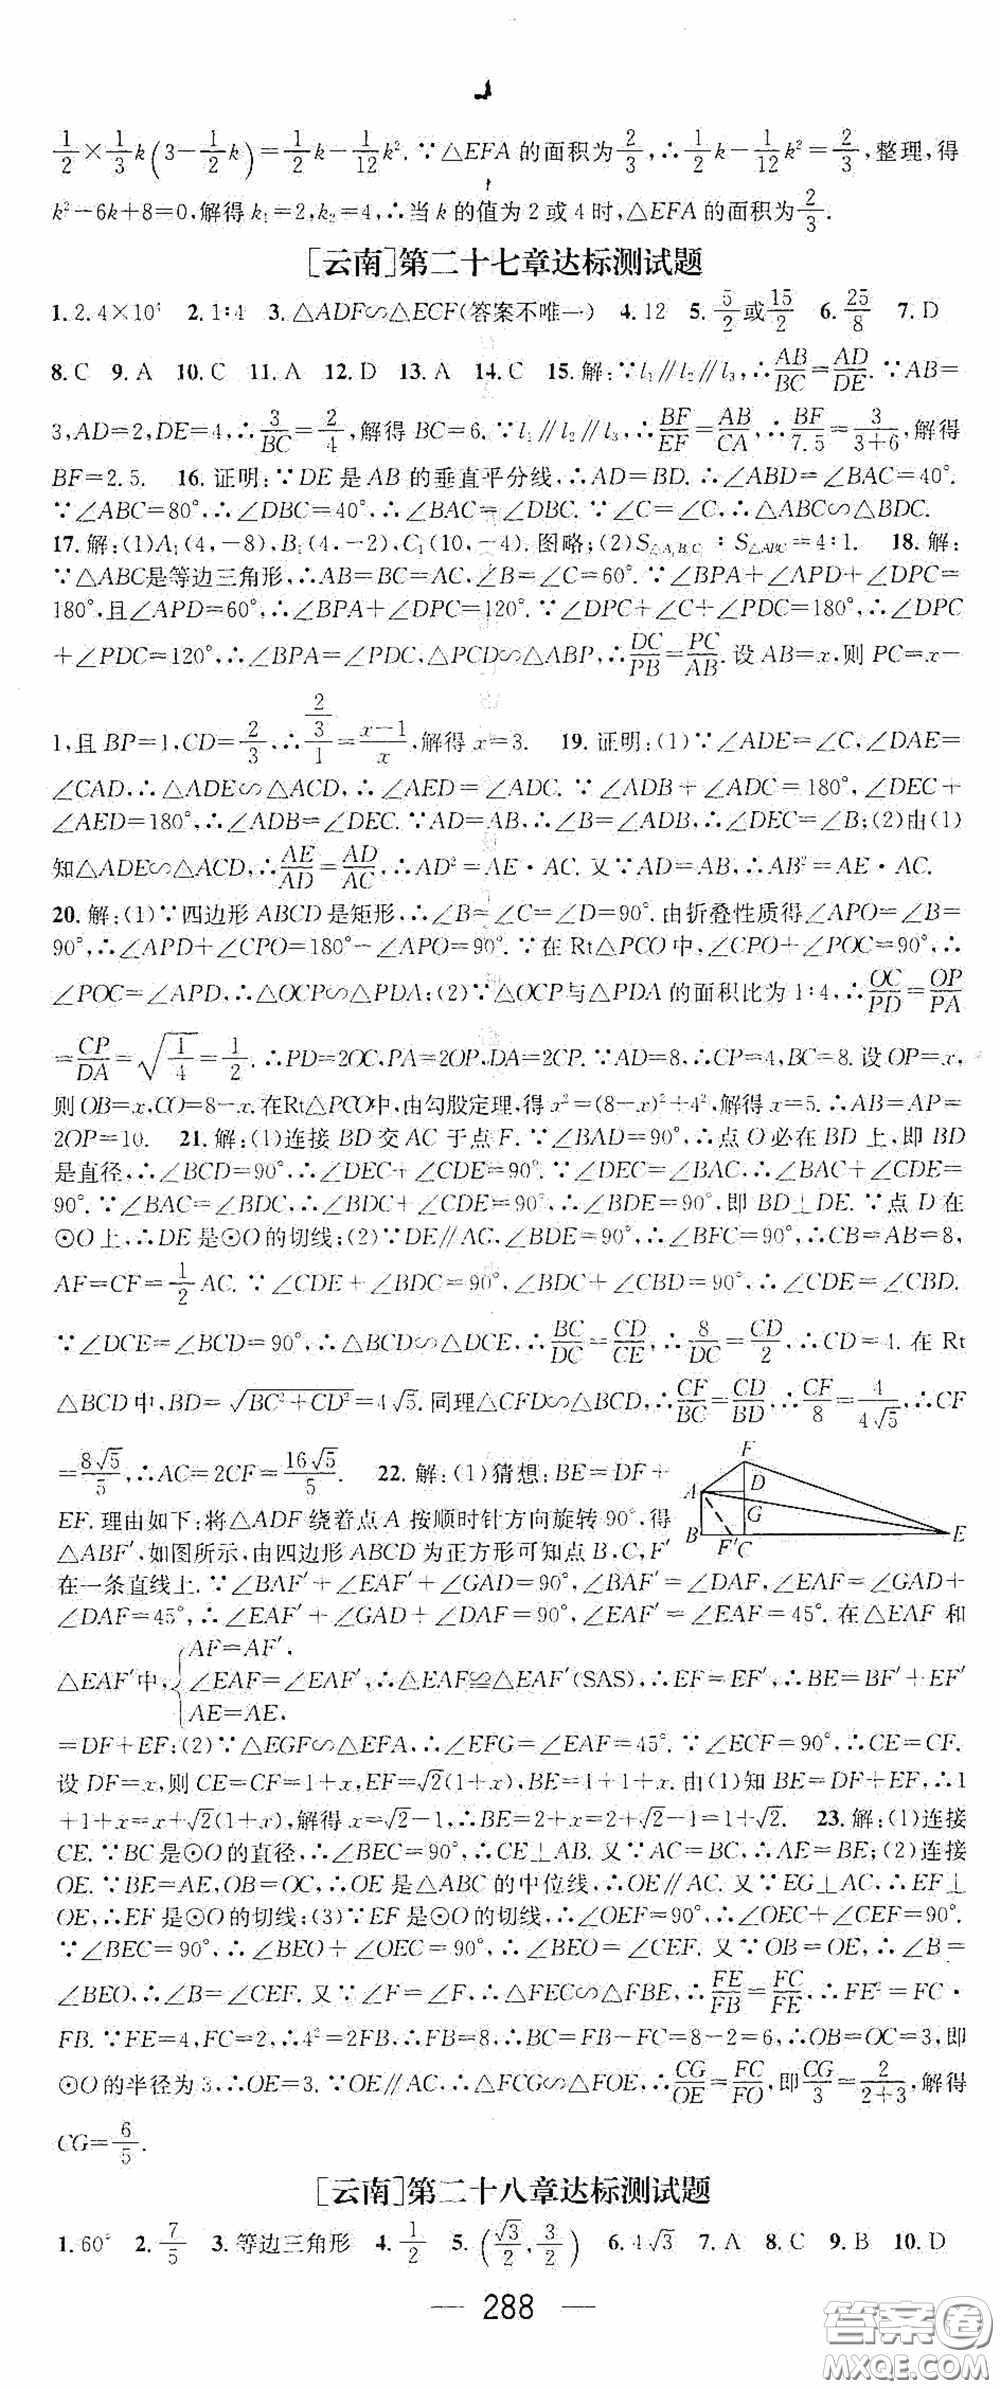 1/2×1/3k(3-1/2k)=1/2k-1/12k². ∵△EFA的面积为2/3,∴1/2k-1/12k²=2/3,整理,得
k²-6k+8=0,解得k₁=2,k₂=4,∴当k的值为2或4时,△EFA的面积为2/3.
[云南]第二十七章达标测试题
1. 2.4×10⁵ 2. 1∶4 3. △ADF∽△ECF(答案不唯一) 4. 12 5. 5/2或15/2 6. 25/8 7. D
8. C 9. A 10. C 11. A 12. D 13. A 14. C 15. 解:∵l₁∥l₂∥l₃,∴AB/BC=AD/DE. ∵AB=
3,AD=2,DE=4,∴3/BC=2/4,解得BC=6. ∵l₁∥l₂∥l₃,∴BF/EF=AB/CA,∴BF/7.5=3/(3+6),解得
BF=2.5. 16. 证明:∵DE是AB的垂直平分线,∴AD=BD. ∴∠ABD=∠BAC=40°.
∵∠ABC=80°,∴∠DBC=40°,∴∠BAC=∠DBC. ∵∠C=∠C,∴△ABC∽△BDC.
17. 解:(1)A₁(4,-8),B₁(4,-2),C₁(10,-4). 图略;(2)S△A₁B₁C₁∶S△ABC=4∶1. 18. 解:
∵△ABC是等边三角形,∴AB=BC=AC,∠B=∠C=60°. ∵∠BPA+∠APD+∠DPC=
180°,且∠APD=60°,∴∠BPA+∠DPC=120°. ∵∠DPC+∠C+∠PDC=180°,∴∠DPC
+∠PDC=120°,∴∠BPA=∠PDC,△PCD∽△ABP,∴DC/PB=PC/AB. 设AB=x,则PC=x-
1,且BP=1,CD=2/3,∴(2/3)/1=(x-1)/x,解得x=3. 19. 证明:(1)∵∠ADE=∠C,∠DAE=
∠CAD,∴△ADE∽△ACD,∴∠AED=∠ADC. ∵∠ADB+∠ADC=180°,∠DEC+
∠AED=180°,∴∠ADB=∠DEC. ∵AD=AB,∴∠B=∠ADB,∴∠DEC=∠B;(2)由(1)
知△ADE∽△ACD,∴AE/AD=AD/AC,∴AD²=AE·AC. 又∵AD=AB,∴AB²=AE·AC.
20. 解:(1)∵四边形ABCD是矩形,∴∠B=∠C=∠D=90°. 由折叠性质得∠APO=∠B=
90°,∴∠APD+∠CPO=180°-∠APO=90°. ∵在Rt△PCO中,∠CPO+∠POC=90°,∴
∠POC=∠APD,∴△OCP∽△PDA;(2)∵△OCP与△PDA的面积比为1∶4,∴OC/PD=OP/PA
=CP/DA=√(1/4)=1/2. ∴PD=2OC,PA=2OP,DA=2CP. ∵AD=8,∴CP=4,BC=8. 设OP=x,
则OB=x,CO=8-x. 在Rt△PCO中,由勾股定理,得x²=(8-x)²+4²,解得x=5. ∴AB=AP=
2OP=10. 21. 解:(1)连接BD交AC于点F. ∵∠BAD=90°,∴点O必在BD上,即BD
是直径,∴∠BCD=90°,∴∠DEC+∠CDE=90°. ∵∠DEC=∠BAC,∴∠BAC+∠CDE=
90°. ∵∠BAC=∠BDC,∴∠BDC+∠CDE=90°,∴∠BDE=90°,即BD⊥DE. ∵点D在
⊙O上,∴DE是⊙O的切线;(2)∵DE∥AC,∠BDE=90°,∴∠BFC=90°,∴CB=AB=8,
AF=CF=1/2AC. ∵∠CDE+∠BDC=90°,∠BDC+∠CBD=90°,∴∠CDE=∠CBD.
∵∠DCE=∠BCD=90°,∴△BCD∽△DCE,∴BC/DC=CD/CE,∴8/DC=CD/2,∴CD=4. 在Rt
△BCD中,BD=√(BC²+CD²)=4√5. 同理△CFD∽△BCD,∴CF/BC=CD/BD,∴CF/8=4/(4√5),∴CF
=8√5/5,∴AC=2CF=16√5/5. 22. 解:(1)猜想:BE=DF+
EF. 理由如下:将△ADF绕着点A按顺时针方向旋转90°,得
△ABF′,如图所示,由四边形ABCD为正方形可知点B,C,F′
F
A
D
G
B
F′C
E
在一条直线上. ∵∠BAF′+∠EAF′+∠GAD=90°,∠BAF′=∠DAF,∠EAF=∠GAD+
∠DAF=45°,∴∠EAF′+∠GAD+∠DAF=90°,∠EAF′=∠EAF=45°. 在△EAF和
△EAF′中,{AF=AF′, ∠EAF=∠EAF′, AE=AE, ∴△EAF≌△EAF′(SAS),∴EF=EF′,∴BE=BF′+EF′
=DF+EF;(2)∵△EGF∽△EFA,∴∠EFG=∠EAF=45°. ∵∠ECF=90°,∴CE=CF.
设DF=x,则CE=CF=1+x,EF=√2(1+x),BE=1+1+x. 由(1)知BE=DF+EF,∴1
+1+x=x+√2(1+x),解得x=√2-1,∴BE=2+x=2+√2-1=1+√2. 23. 解:(1)连接
CE. ∵BC是⊙O的直径,∴∠BEC=90°,∴CE⊥AB. 又∵AC=BC,∴AE=BE;(2)连接
OE. ∵BE=AE,OB=OC,∴OE是△ABC的中位线,∴OE∥AC. 又∵EG⊥AC,∴EF⊥
OE,∴EF是⊙O的切线;(3)∵EF是⊙O的切线,∴∠OEF=90°,∴∠OEC+∠CEF=90°.
∵∠BEC=90°,∴∠BEO+∠OEC=90°,∴∠BEO=∠CEF. 又∵OB=OE,∴∠B=
∠BEO,∴∠B=∠CEF. 又∵∠F=∠F,∴△FEC∽△FBE,∴FE/FB=FC/FE,∴FE²=FC·
FB. ∵FE=4,FC=2,∴4²=2FB,∴FB=8,∴BC=FB-FC=8-2=6,∴OB=OC=3,即
⊙O的半径为3,∴OE=3. ∵OE∥AC,∴△FCG∽△FOE,∴CG/OE=FC/FO,即CG/3=2/(2+3),解得
CG=6/5.
[云南]第二十八章达标测试题
1. 60° 2. 7/5 3. 等边三角形 4. 1/2 5. (√3/2,3/2) 6. 4√3 7. A 8. C 9. B 10. D
— 288 —
答案圈
MXQE.COM